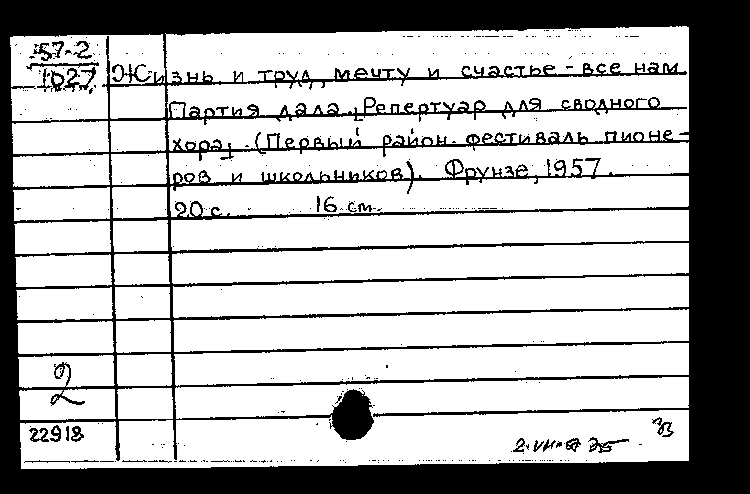 57-2
1027
Жизнь и труд, мечту и счастье - все нам
Партия дала. [Репертуар для сводного
хора]. (Первый район. фестиваль пионе-
ров и школьников). Фрунзе, 1957.
20 с. 16 см.
2
22918